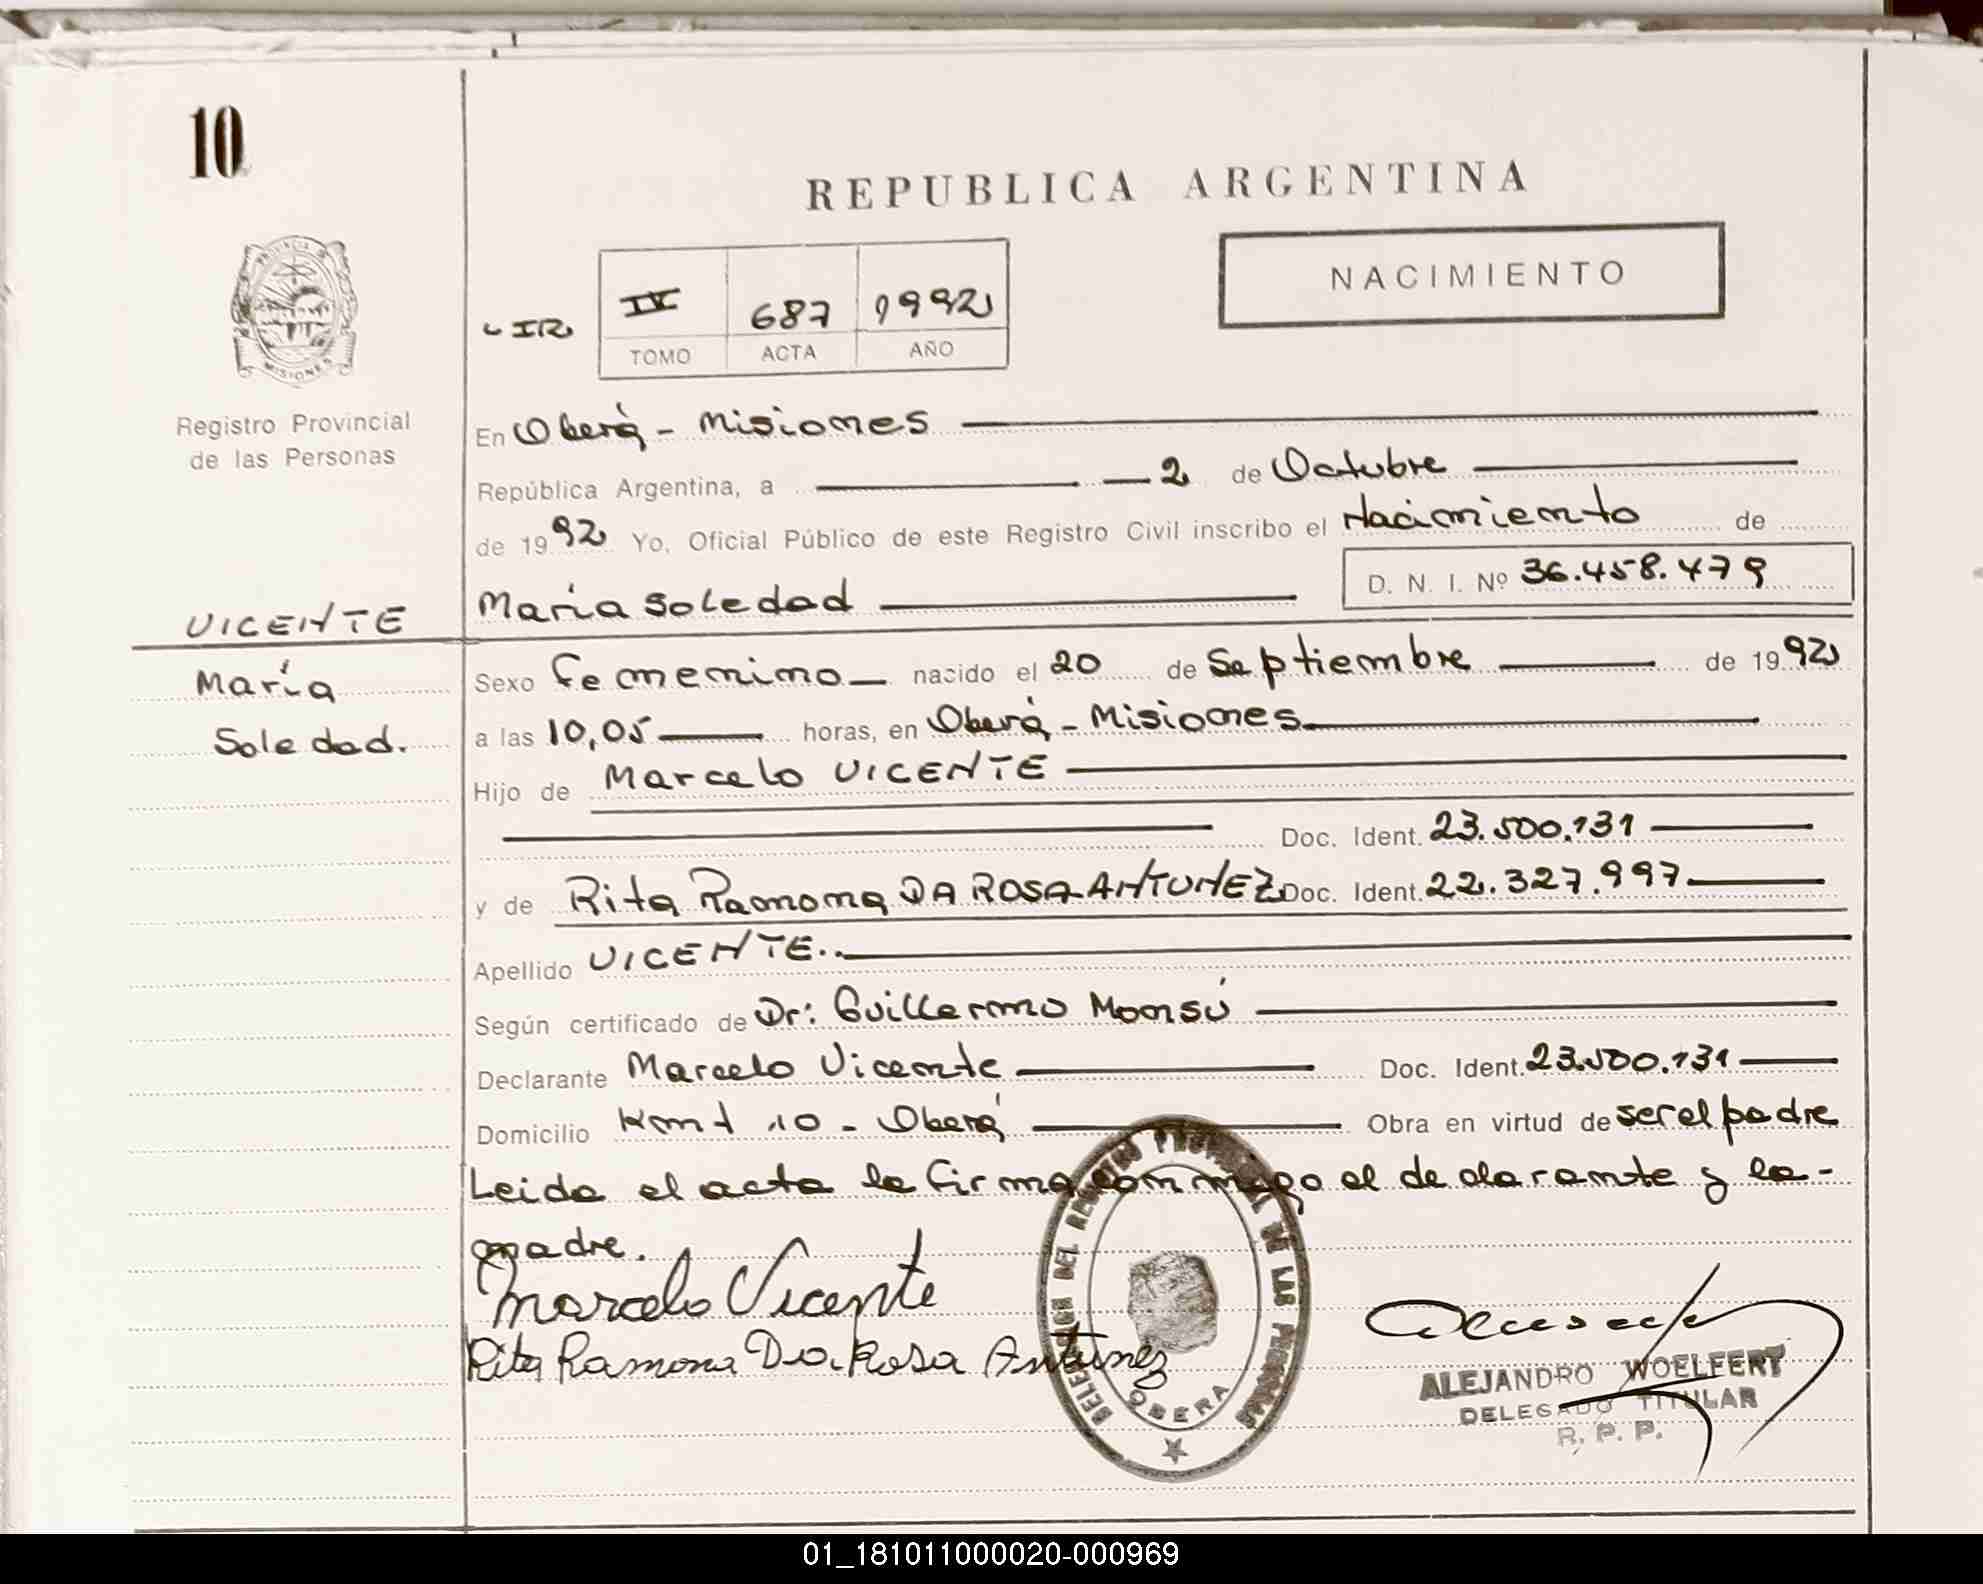 10
REPUBLICA ARGENTINA
PROVINCIA DE
MISIONES
NACIMIENTO
IV 687 1992
TOMO ACTA AÑO
Registro Provincial
de las Personas
En Oberá - Misiones
República Argentina, a 2 de Octubre
de 1992 Yo, Oficial Público de este Registro Civil inscribo el Nacimiento de
María Soledad D. N. I. Nº 36.458.479
VICENTE
María
Soledad.
Sexo Femenino nacido el 20 de Septiembre de 1992
a las 10,05 horas, en Oberá - Misiones
Hijo de Marcelo VICENTE
Doc. Ident. 23.500.131
y de Rita Ramona DA ROSA ANTUNEZ Doc. Ident. 22.327.997
Apellido VICENTE..
Según certificado de Dr: Guillermo Monsú
Declarante Marcelo Vicente Doc. Ident. 23.500.131
Domicilio Kmt 10 - Oberá Obra en virtud de ser el padre
Leida el acta la firma conmigo el declarante y la-
madre.
Marcelo Vicente
Rita Ramona Da Rosa Antunez
DELEGACION DEL REGISTRO PROVINCIAL DE LAS PERSONAS
OBERA
ALEJANDRO WOELFERT
DELEGADO TITULAR
R. P. P.
01_181011000020-000969